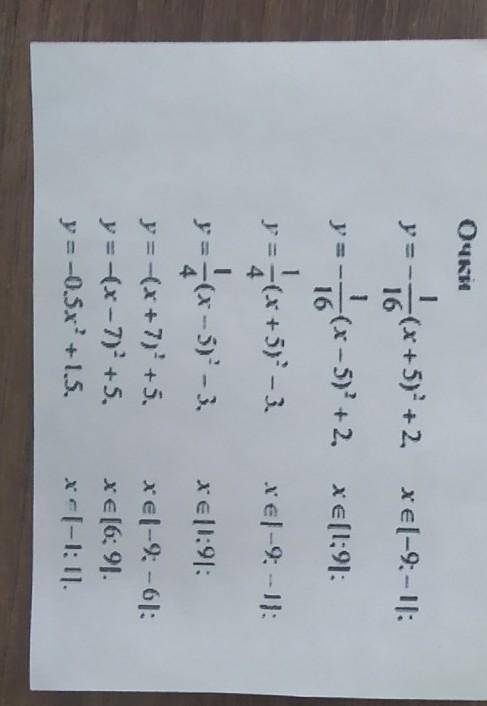 Очки
y = -1/16(x + 5)² + 2, x ∈ [-9; -1];
y = -1/16(x - 5)² + 2, x ∈ [1; 9];
y = 1/4(x + 5)² - 3, x ∈ [-9; -1];
y = 1/4(x - 5)² - 3, x ∈ [1; 9];
y = -(x + 7)² + 5, x ∈ [-9; -6];
y = -(x - 7)² + 5, x ∈ [6; 9].
y = -0.5x² + 1.5, x ∈ [-1; 1].